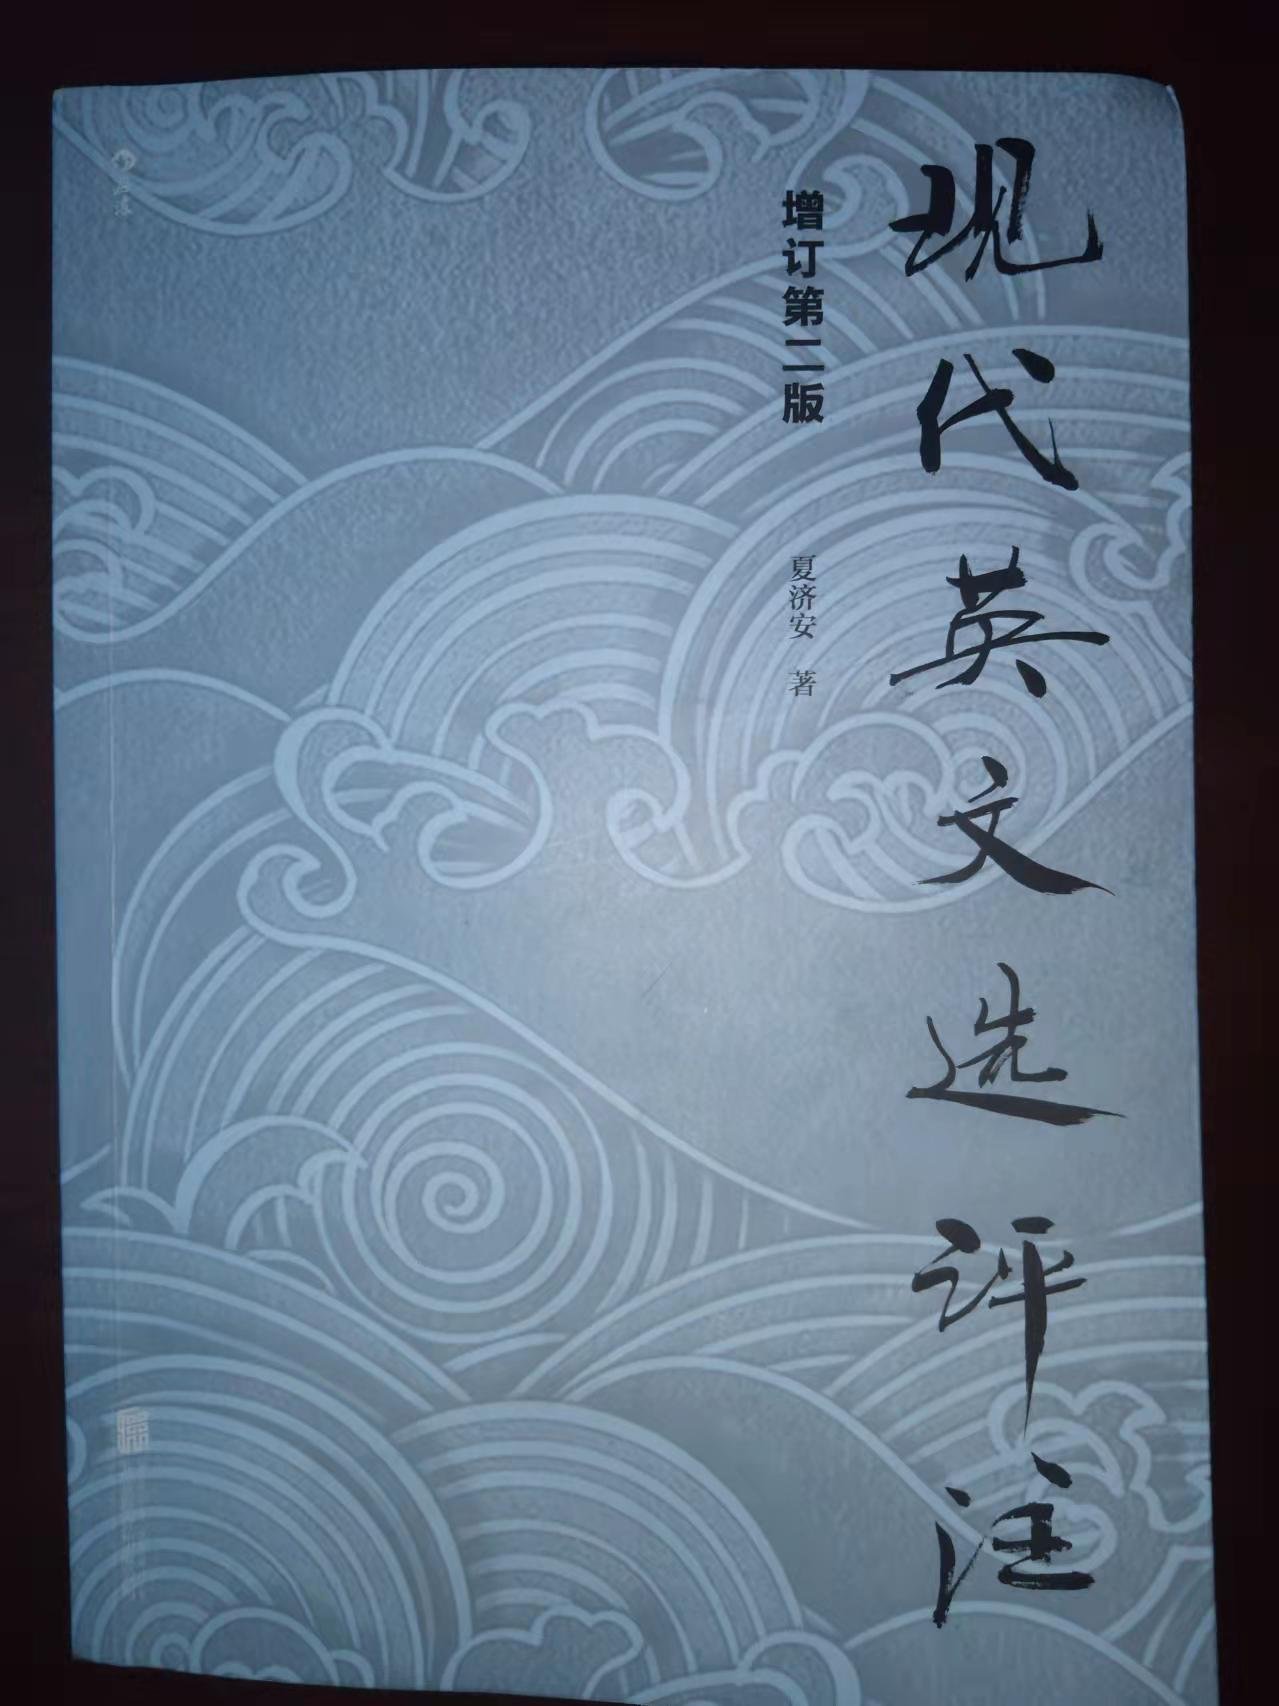 现代英文选评注
增订第二版
夏济安 著
后浪